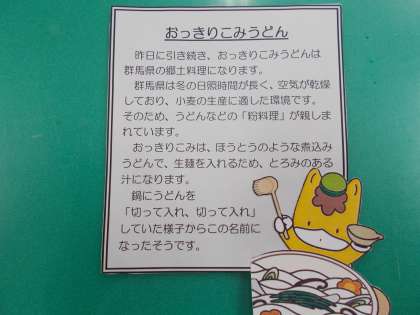 おっきりこみうどん
昨日に引き続き、おっきりこみうどんは
群馬県の郷土料理になります。
群馬県は冬の日照時間が長く、空気が乾燥
しており、小麦の生産に適した環境です。
そのため、うどんなどの「粉料理」が親しま
れています。
おっきりこみは、ほうとうのような煮込み
うどんで、生麺を入れるため、とろみのある
汁になります。
鍋にうどんを
「切って入れ、切って入れ」
していた様子からこの名前に
なったそうです。